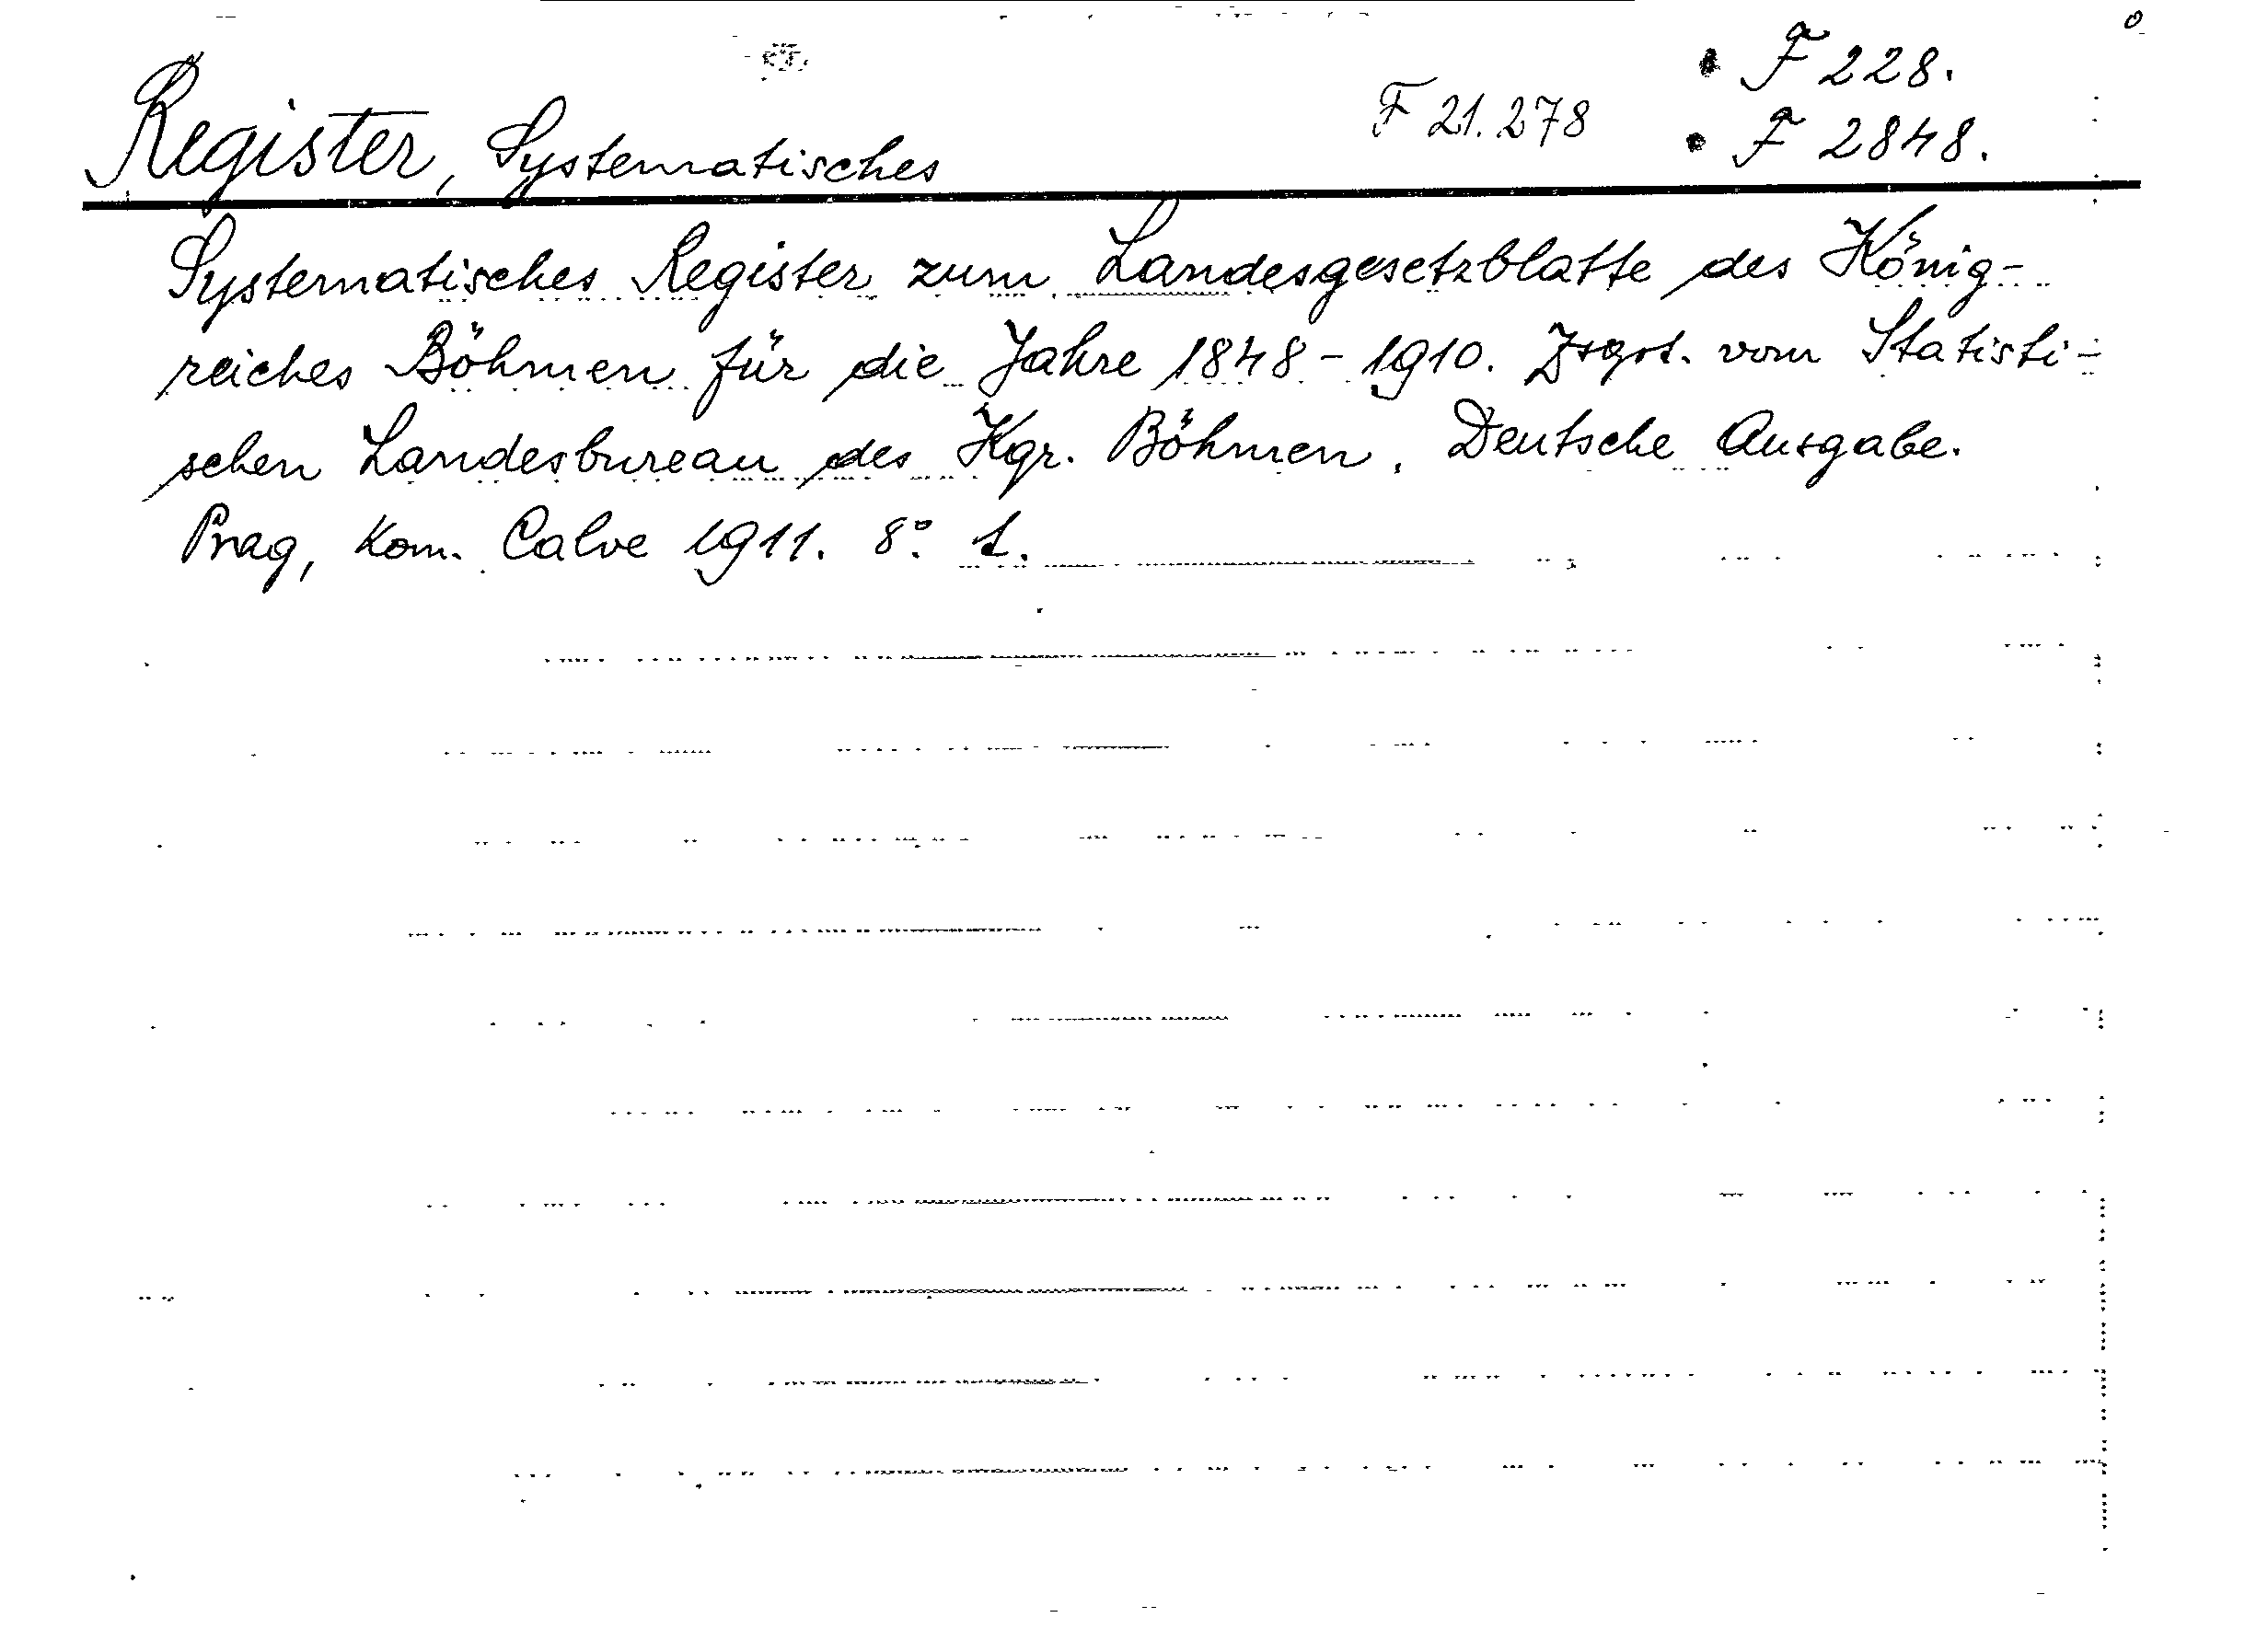 • F 228.
Register, Systematisches F 21.278 • F 2848.
Systematisches Register zum Landesgesetzblatte des König-
reiches Böhmen für die Jahre 1848 - 1910. Zsgst. vom Statisti-
schen Landesbureau des Kgr. Böhmen. Deutsche Ausgabe.
Prag, Kom. Calve 1911. 8°. 1.